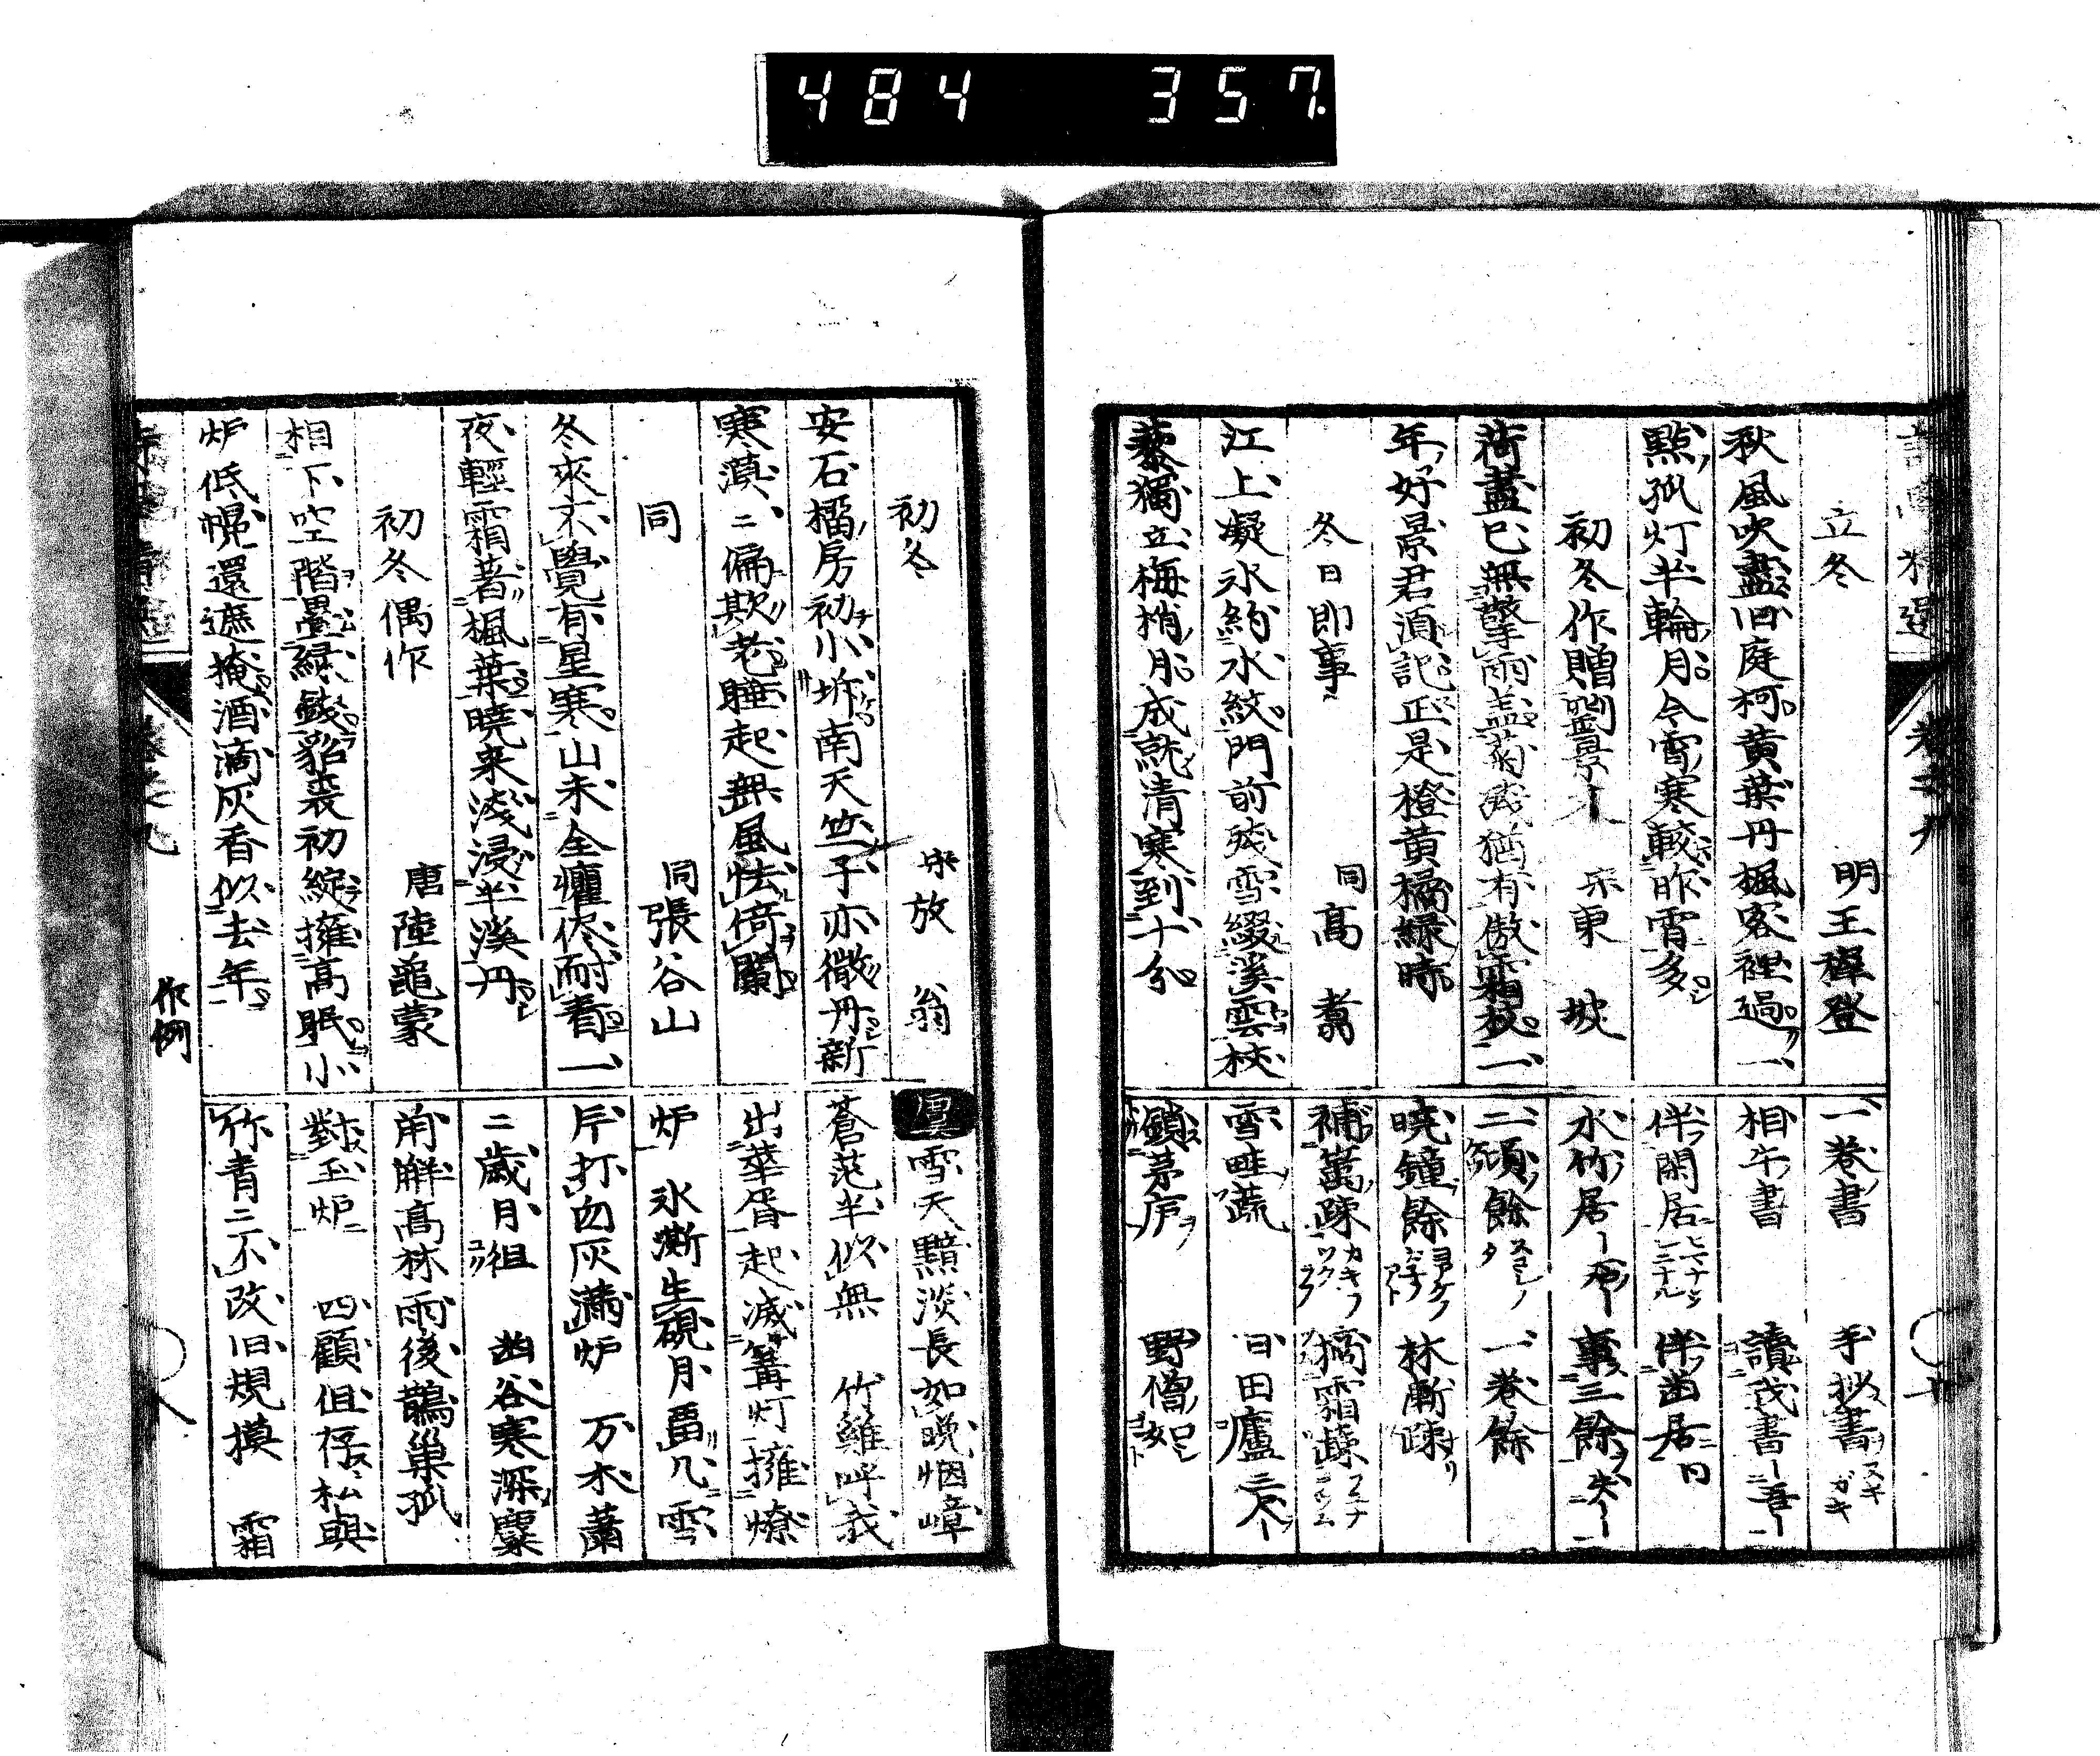 484 357
立冬 明王穉登
秋風吹盡旧庭柯黄葉丹楓客裡過一
點孤灯半輪月今宵寒較昨宵多
初冬作贈劉景文 宋東坡
荷盡已無擎雨盖菊残猶有傲霜枝一
年好景君須記正是橙黄橘緑時
冬日即事 同高翥
江上凝氷約水紋門前残雪綴溪雲杖
藜獨立梅梢月成就清寒到十分
一巻書 手抄書
相牛書 讀我書
伴閑居 伴幽居
水竹居 事三餘
二頃餘 一巻餘
暁鐘餘 林漸疎
補籬疎 摘霜蔬
雪畦蔬 田廬
鎖茅庐 野僧如
初冬 宋放翁
安石榴房初小坼南天竺子亦微丹新
寒漠二偏欺老睡起無風怯倚闌
同 同張谷山
冬來不覺有星寒山未全癯侭耐看一
夜輕霜著楓葉暁来淺浸半溪丹
初冬偶作 唐陸龜蒙
相下空階畳緑錢貂裘初綻擁高眠小
炉低幌還遮掩酒滴灰香似去年
作例
雪天黯淡長如晩烟嶂
蒼茫半似無 竹雞呼我
出華胥起滅篝灯擁燎
炉 氷澌生硯月畐几雪
片打囱灰満炉 万木蕭
二歳月徂 幽谷寒深麋
角觧髙林雨後鵲巣孤
對玉炉 四顧但存松與
竹青二不改旧規摸 霜